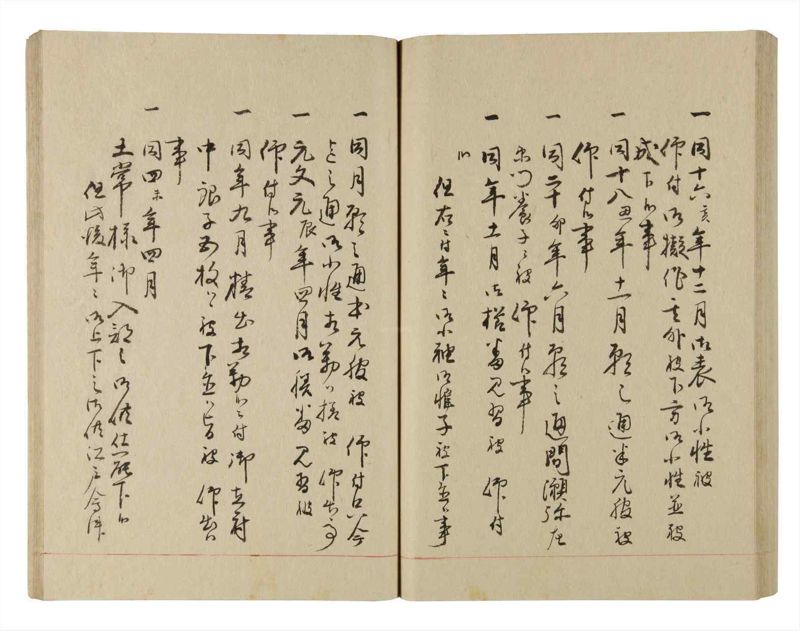 一同十六亥年十二月御表御小性被
仰付御擬作其外被下方御小性並被
成下候事
一同十八丑年十一月願之通半元服被
仰付候事
一同二十卯年六月願之通間瀬弥左
衛門養子ニ被 仰付候事
一同年十一月御櫛番見習被 仰付
但右ニ付年々御小袖御帷子被下置候事
一同月願之通本元服被 仰付只今
迄之通御小性相勤候様被 仰出候事
一元文元辰年四月御膳番見習被
仰付候事
一同年九月精出相勤候ニ付御在府
中銀子五枚ツヽ被下置候旨被 仰出候
事
一同四未年四月
土常様御入部之御供仕罷下候
但此後年々御上下之御供江戸会津